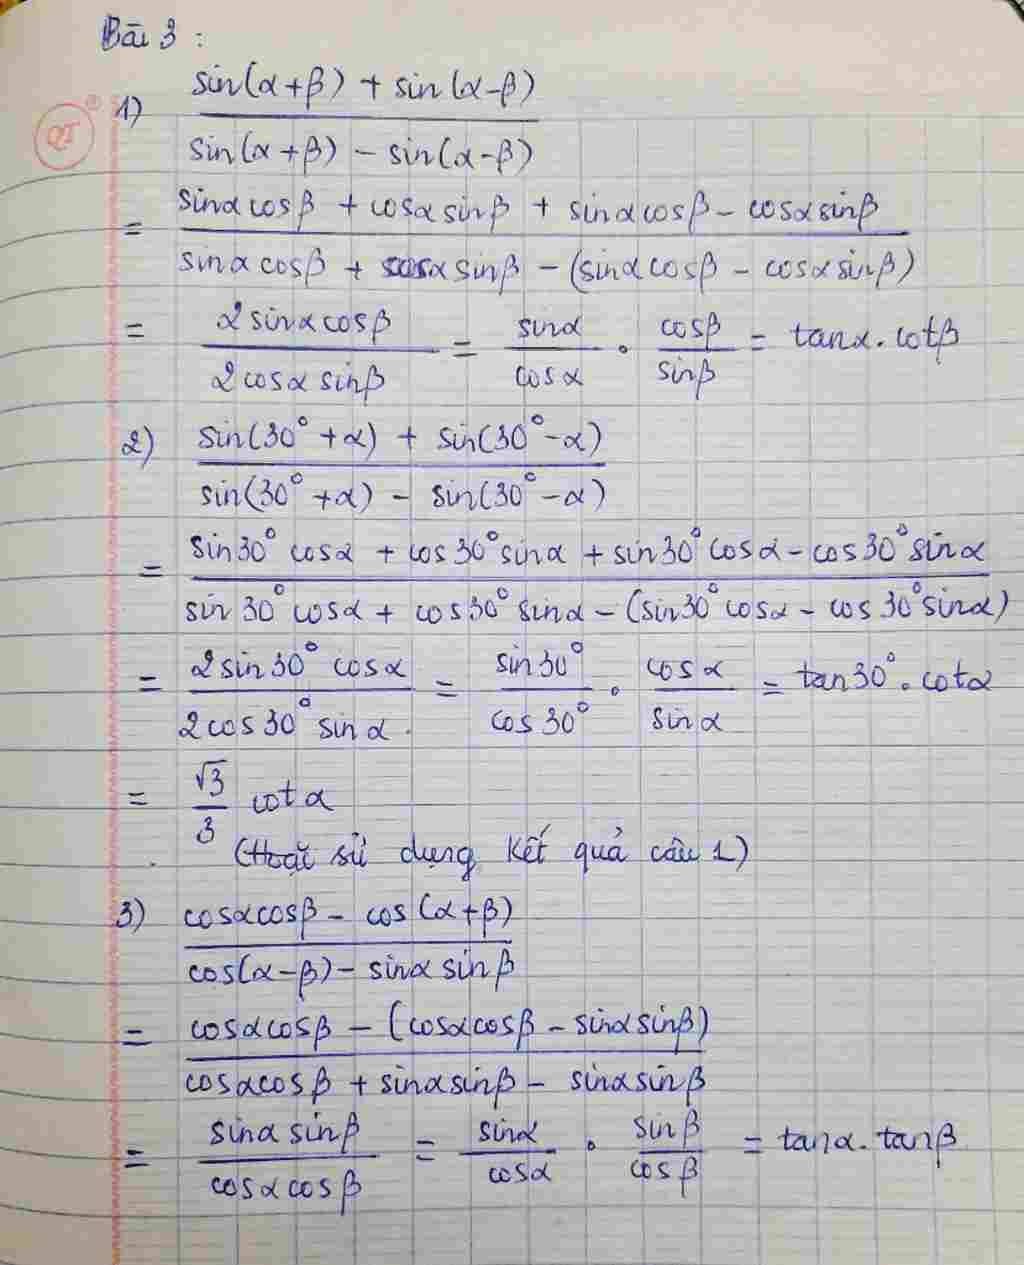 Bài 3 :
1) sin(α+β) + sin(α-β)
sin(α+β) - sin(α-β)
= sinα cosβ + cosα sinβ + sinα cosβ - cosα sinβ
sinα cosβ + cosα sinβ - (sinα cosβ - cosα sinβ)
= 2 sinα cosβ = sinα . cosβ = tanα . cotβ
2 cosα sinβ cosα sinβ
2) sin(30° + α) + sin(30° - α)
sin(30° + α) - sin(30° - α)
= sin30° cosα + cos30° sinα + sin30° cosα - cos30° sinα
sin30° cosα + cos30° sinα - (sin30° cosα - cos30° sinα)
= 2 sin30° cosα = sin30° . cosα = tan30° . cotα
2 cos30° sinα . cos30° sinα
= √3 cotα
3
(Hoặc sử dụng kết quả câu 1)
3) cosα cosβ - cos(α+β)
cos(α-β) - sinα sinβ
= cosα cosβ - (cosα cosβ - sinα sinβ)
cosα cosβ + sinα sinβ - sinα sinβ
= sinα sinβ = sinα . sinβ = tanα . tanβ
cosα cosβ cosα cosβ
QT